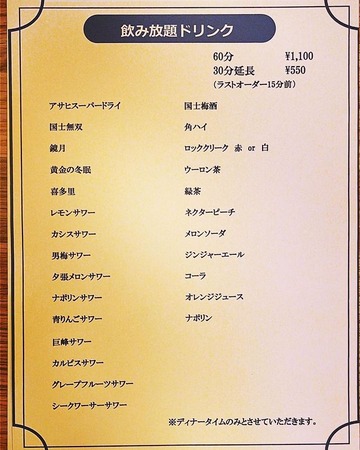 飲み放題ドリンク
60分 ¥1,100
30分延長 ¥550
（ラストオーダー15分前）
アサヒスーパードライ 国士梅酒
国士無双 角ハイ
鏡月 ロッククリーク 赤 or 白
黄金の冬眠 ウーロン茶
喜多里 緑茶
レモンサワー ネクターピーチ
カシスサワー メロンソーダ
男梅サワー ジンジャーエール
夕張メロンサワー コーラ
ナポリンサワー オレンジジュース
青りんごサワー ナポリン
巨峰サワー
カルピスサワー
グレープフルーツサワー
シークワーサーサワー
※ディナータイムのみとさせていただきます。